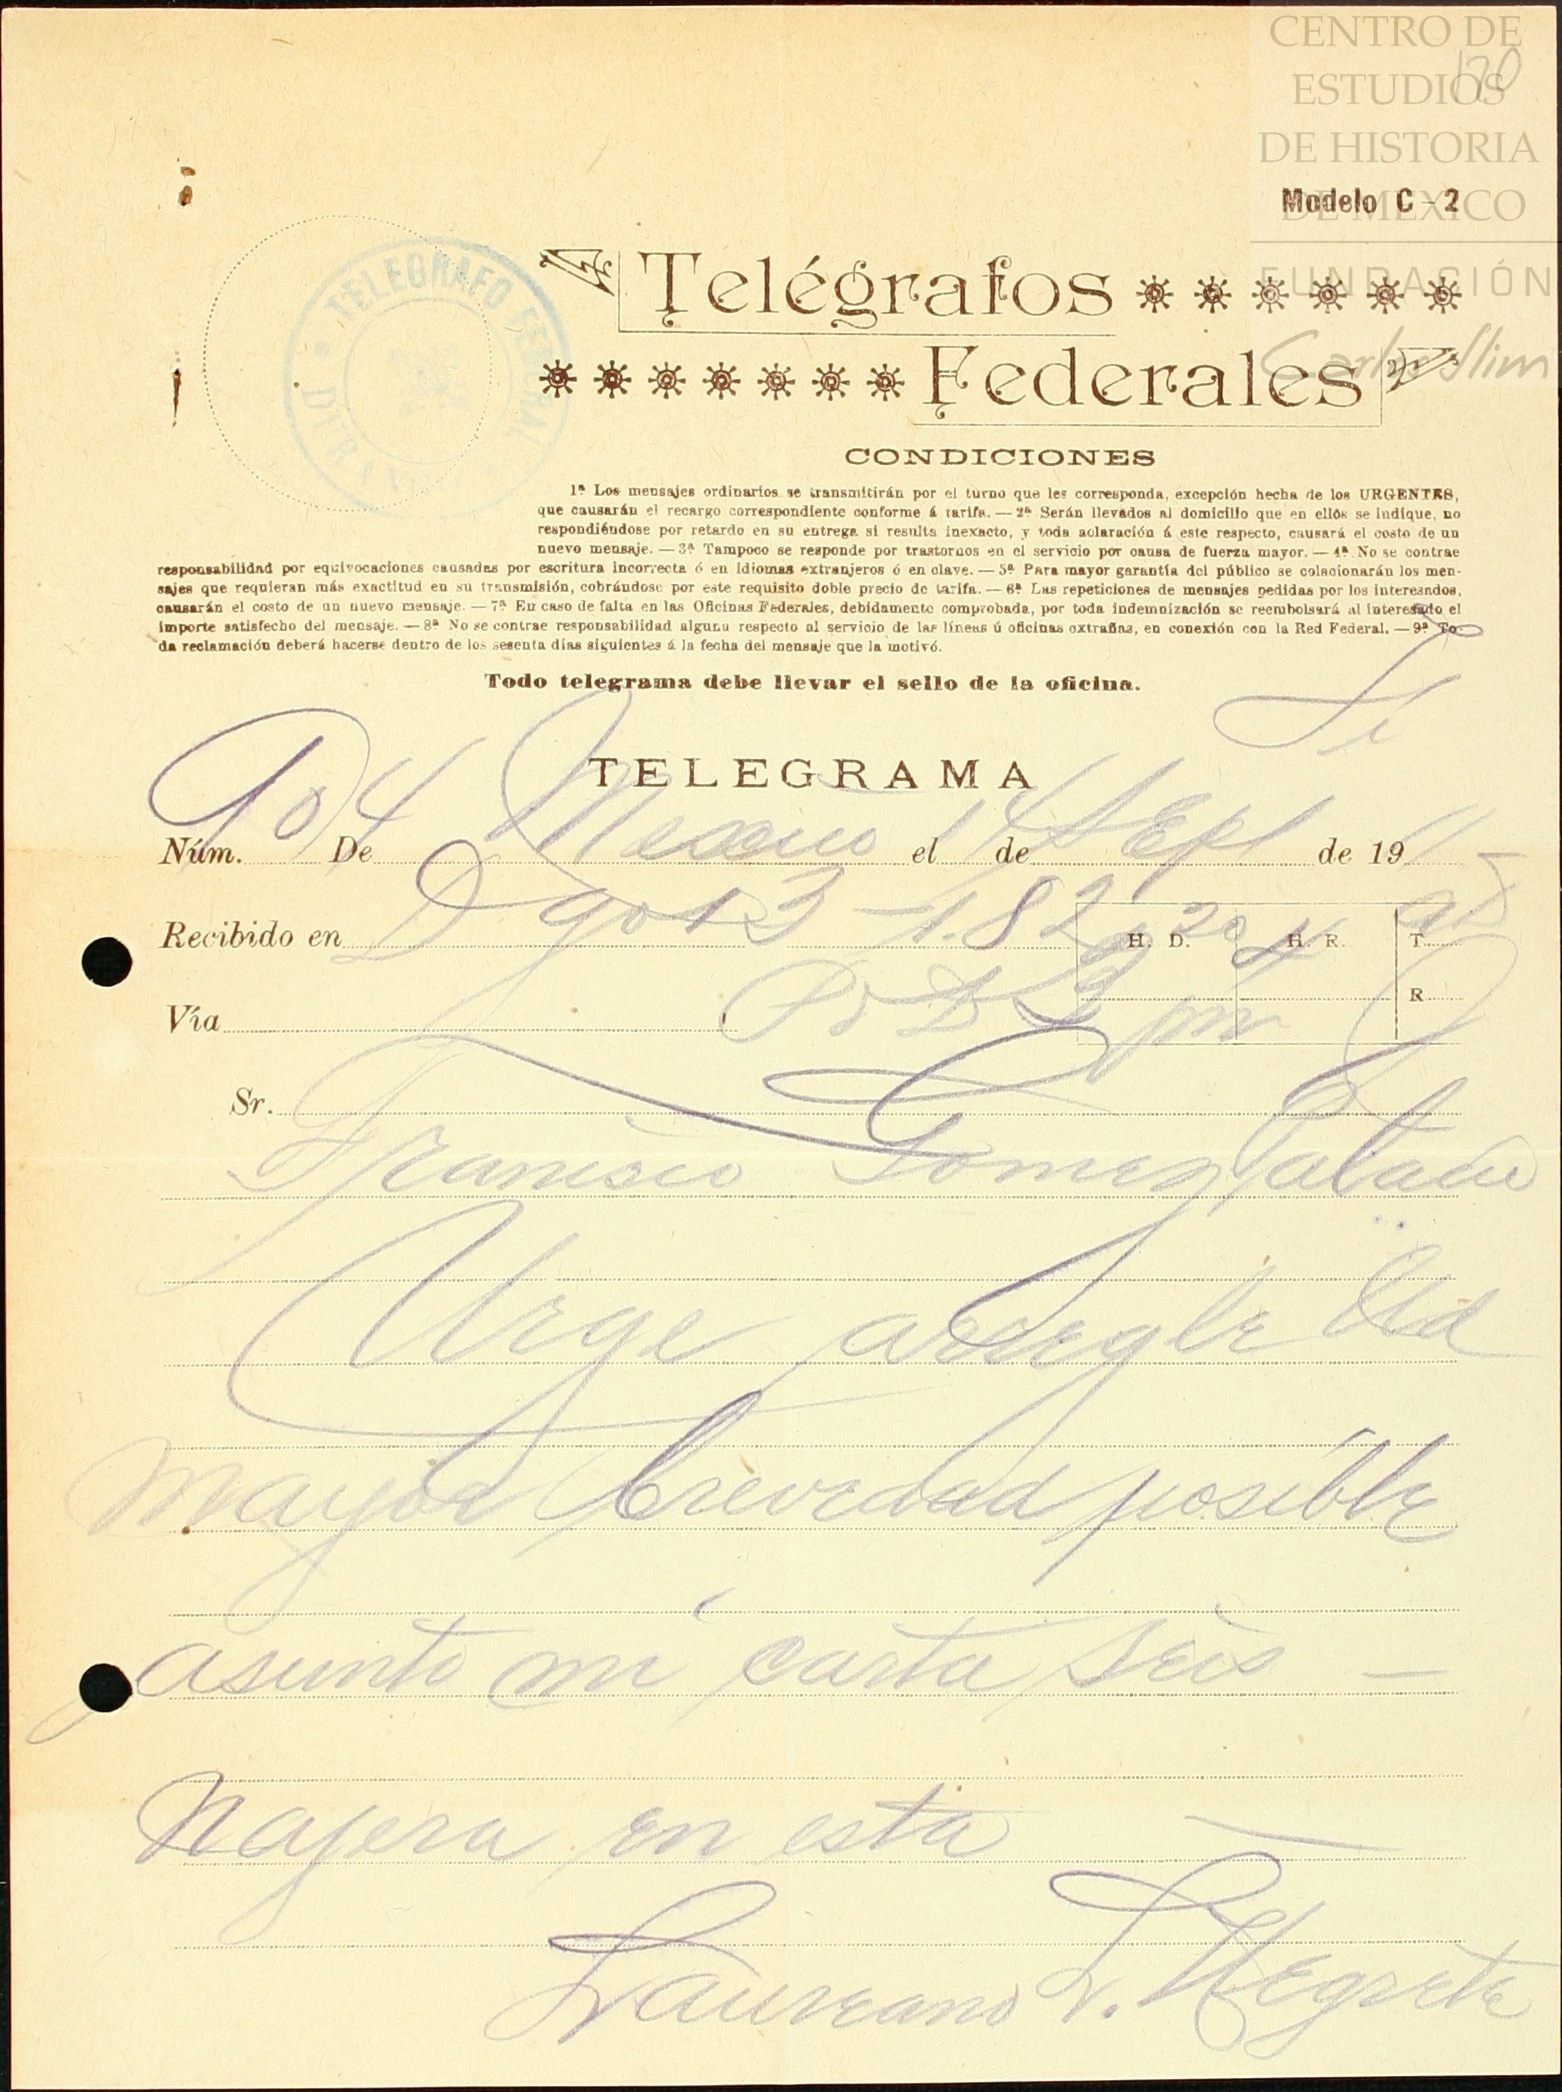 CENTRO DE
ESTUDIOS
DE HISTORIA
DE MEXICO
FUNDACIÓN
Carlos Slim
120
Modelo C - 2
TELEGRAFO FEDERAL
DURANGO
Telégrafos
Federales
CONDICIONES
1ª Los mensajes ordinarios se transmitirán por el turno que les corresponda, excepción hecha de los URGENTES,
que causarán el recargo correspondiente conforme á tarifa. — 2ª Serán llevados al domicilio que en ellos se indique, no
respondiéndose por retardo en su entrega si resulta inexacto, y toda aclaración á este respecto, causará el costo de un
nuevo mensaje. — 3ª Tampoco se responde por trastornos en el servicio por causa de fuerza mayor. — 4ª No se contrae
responsabilidad por equivocaciones causadas por escritura incorrecta ó en idiomas extranjeros ó en clave. — 5ª Para mayor garantía del público se colacionarán los men-
sajes que requieran más exactitud en su transmisión, cobrándose por este requisito doble precio de tarifa. — 6ª Las repeticiones de mensajes pedidas por los interesados,
causarán el costo de un nuevo mensaje. — 7ª En caso de falta en las Oficinas Federales, debidamente comprobada, por toda indemnización se reembolsará al interesado el
importe satisfecho del mensaje. — 8ª No se contrae responsabilidad alguna respecto al servicio de las líneas ú oficinas extrañas, en conexión con la Red Federal. — 9ª To-
da reclamación deberá hacerse dentro de los sesenta días siguientes á la fecha del mensaje que la motivó.
Todo telegrama debe llevar el sello de la oficina.
TELEGRAMA
Núm. 904 De Mexico el 14 de Sept de 1911
Recibido en Dgo 13 - 1.82 H. D. H. R. T.
Vía R
Sr.
Francisco Gomez Palacio
Urge arregle Ud
mayor brevedad posible
asunto mi carta seis —
Najera en esta —
Laureano L. Negrete